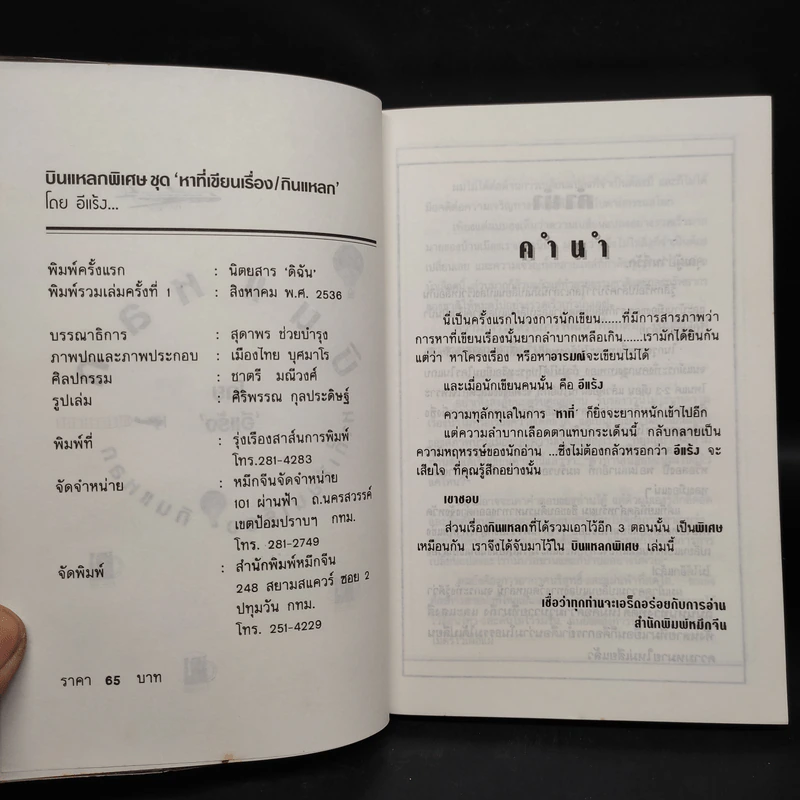 บินแหลกพิเศษ ชุด 'หาที่เขียนเรื่อง/กินแหลก'
โดย อีแร้ง...
พิมพ์ครั้งแรก : นิตยสาร 'ดิฉัน'
พิมพ์รวมเล่มครั้งที่ 1 : สิงหาคม พ.ศ. 2536
บรรณาธิการ : สุดาพร ช่วยบำรุง
ภาพปกและภาพประกอบ : เมืองไทย บุศมาโร
ศิลปกรรม : ชาตรี มณีวงศ์
รูปเล่ม : ศิริพรรณ กุลประดิษฐ์
พิมพ์ที่ : รุ่งเรืองสาส์นการพิมพ์
โทร.281-4283
จัดจำหน่าย : หมึกจีนจัดจำหน่าย
101 ผ่านฟ้า ถ.นครสวรรค์
เขตป้อมปราบฯ กทม.
โทร. 281-2749
จัดพิมพ์ : สำนักพิมพ์หมึกจีน
248 สยามสแควร์ ซอย 2
ปทุมวัน กทม.
โทร. 251-4229
ราคา 65 บาท
คำนำ
นี่เป็นครั้งแรกในวงการนักเขียน......ที่มีการสารภาพว่า
การหาที่เขียนเรื่องนั้นยากลำบากเหลือเกิน....เรามักได้ยินกัน
แต่ว่า หาโครงเรื่อง หรือหาอารมณ์จะเขียนไม่ได้
และเมื่อนักเขียนคนนั้น คือ อีแร้ง
ความทุลักทุเลในการ 'หาที่' ก็ยิ่งจะยากหนักเข้าไปอีก
แต่ความลำบากเลือดตาแทบกระเด็นนี้ กลับกลายเป็น
ความมหุหรรษ์ของนักอ่าน ...ซึ่งไม่ต้องกลัวหรอกว่า อีแร้ง จะ
เสียใจ ที่คุณรู้สึกอย่างนั้น
เขาชอบ
ส่วนเรื่องกินแหลกที่ได้รวมเอาไว้อีก 3 ตอนนั้น เป็นพิเศษ
เหมือนกัน เราจึงได้จับมาไว้ใน บินแหลกพิเศษ เล่มนี้
เชื่อว่าทุกท่านจะเอร็ดอร่อยกับการอ่าน
สำนักพิมพ์หมึกจีน